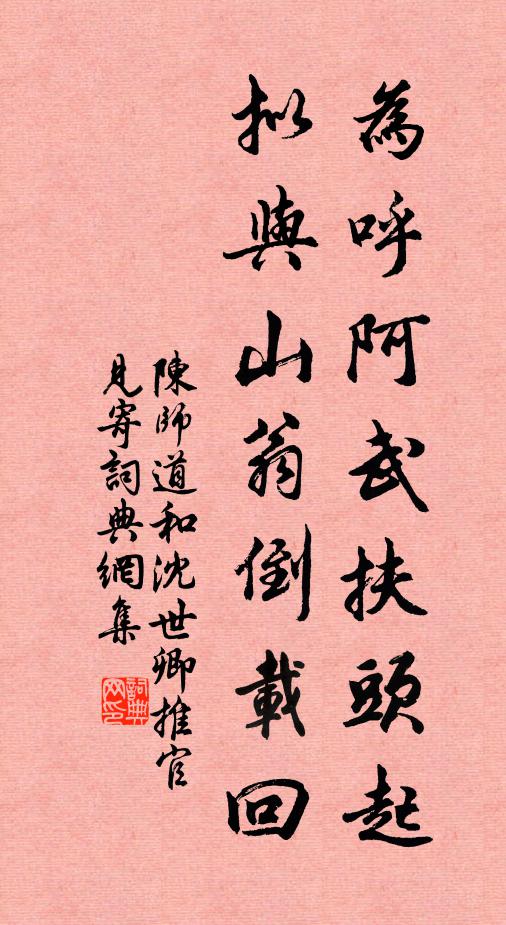 為呼阿武扶頭起
拟與山翁倒載回
陳師道和沈世卿推官
見寄詞典網集
詞典
网印